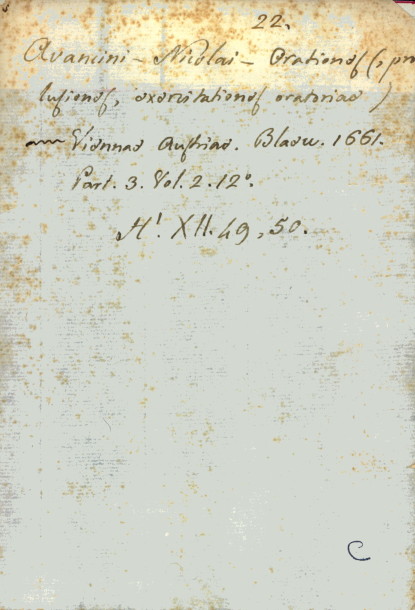 22.
Avancini - Nicolai - Orationes (, pro
lusiones, exercitationes oratoriae)
Viennae Austriae. Blaeu. 1661.
Part. 3. Vol. 2. 12°.
H'. XII. 49, 50.
C